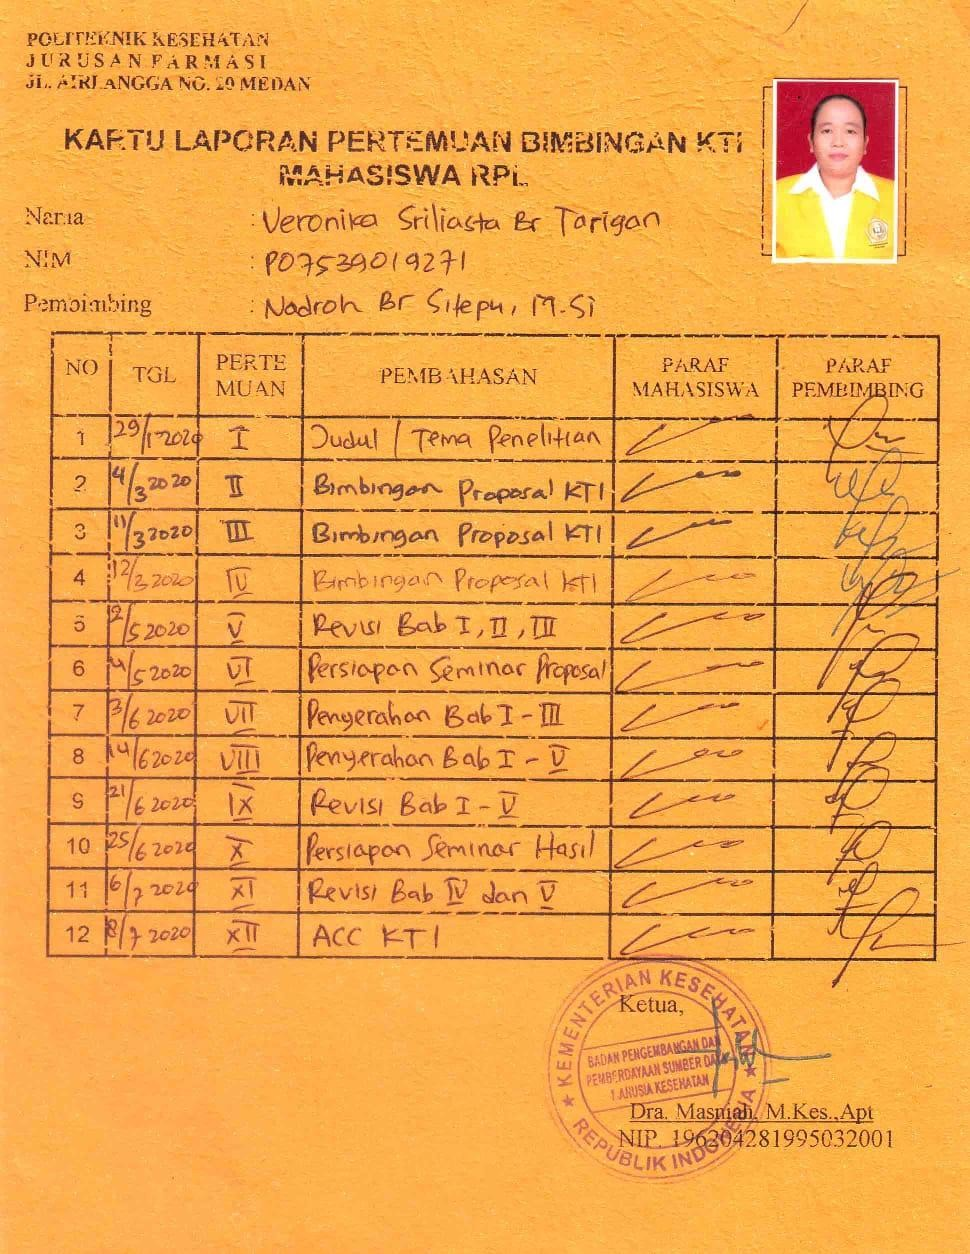 POLITEKNIK KESEHATAN
JURUSAN FARMASI
JL. AIRLANGGA NO. 20 MEDAN
KARTU LAPORAN PERTEMUAN BIMBINGAN KTI
MAHASISWA RPL
Nama : Veronika Sriliasta Br Tarigan
NIM : P07539019271
Pembimbing : Nadroh Br Sitepu, M.Si
NO TGL PERTEMUAN PEMBAHASAN PARAF MAHASISWA PARAF PEMBIMBING
1 29/1 2020 I Judul / Tema Penelitian
2 4/3 2020 II Bimbingan Proposal KTI
3 11/3 2020 III Bimbingan Proposal KTI
4 12/3 2020 IV Bimbingan Proposal KTI
5 2/5 2020 V Revisi Bab I, II, III
6 4/5 2020 VI Persiapan Seminar Proposal
7 3/6 2020 VII Penyerahan Bab I - III
8 14/6 2020 VIII Penyerahan Bab I - V
9 21/6 2020 IX Revisi Bab I - V
10 25/6 2020 X Persiapan Seminar Hasil
11 6/7 2020 XI Revisi Bab IV dan V
12 8/7 2020 XII ACC KTI
Ketua,
KEMENTERIAN KESEHATAN
BADAN PENGEMBANGAN DAN
PEMBERDAYAAN SUMBER DAYA
MANUSIA KESEHATAN
REPUBLIK INDONESIA
Dra. Masniah, M.Kes.,Apt
NIP. 196204281995032001